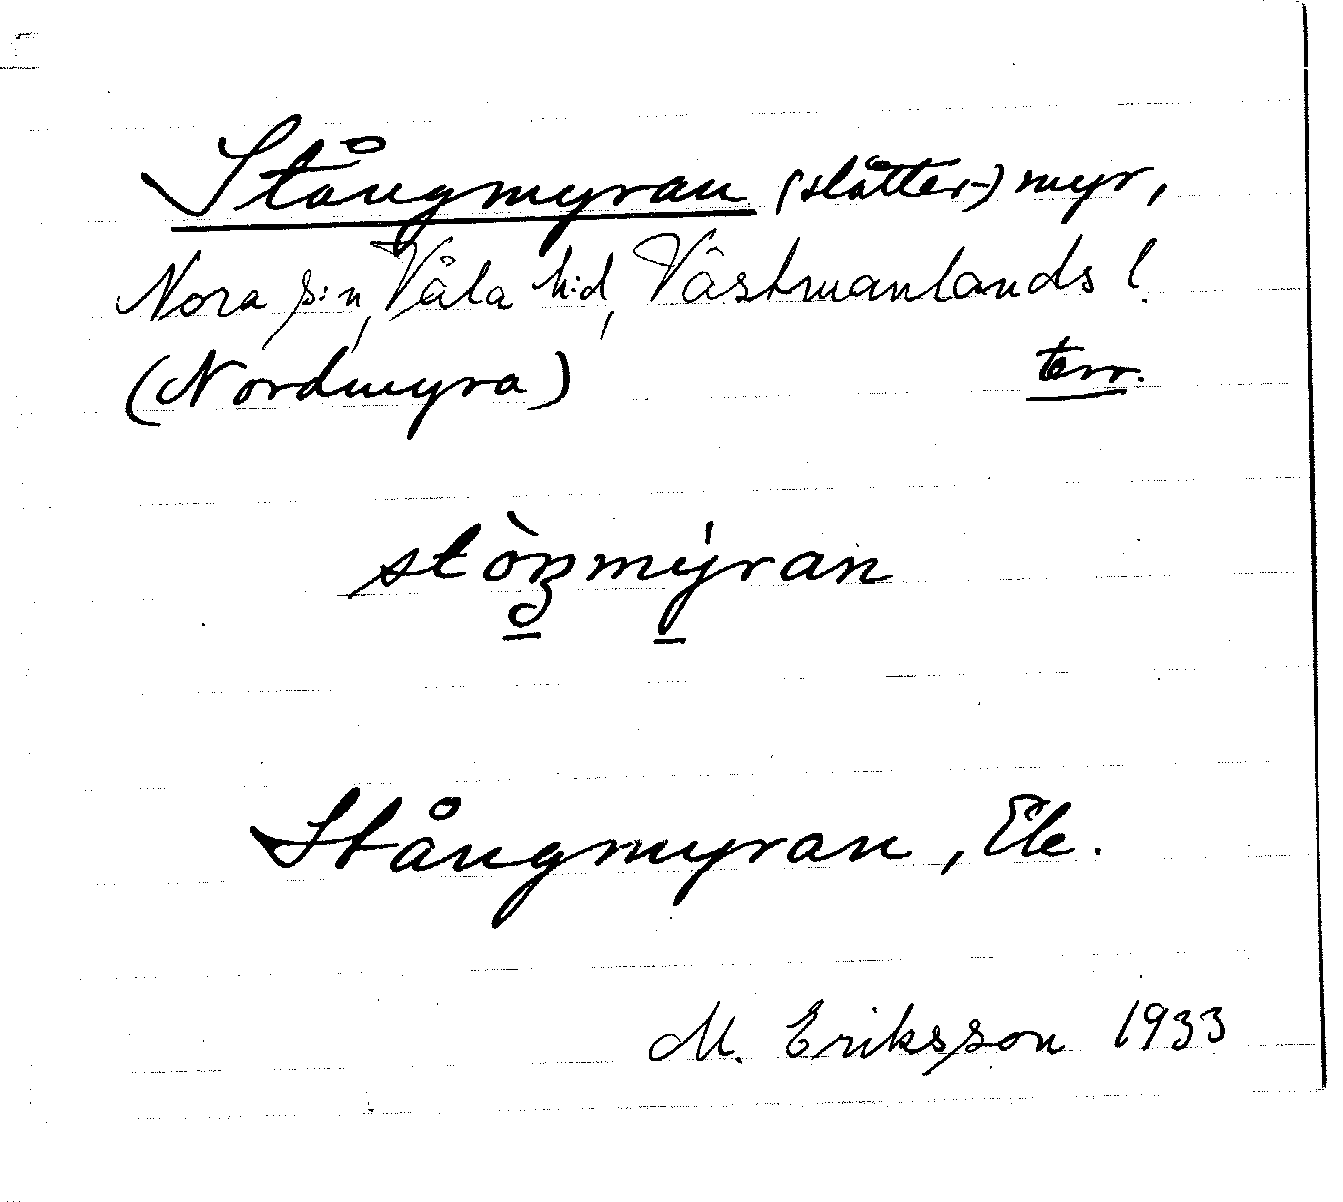 Stångmyran (slåtter-) myr,
Nora s:n, Våla h:d, Västmanlands l.
(Nordmyra) terr.
Stångmyran, Ek.
M. Eriksson 1933